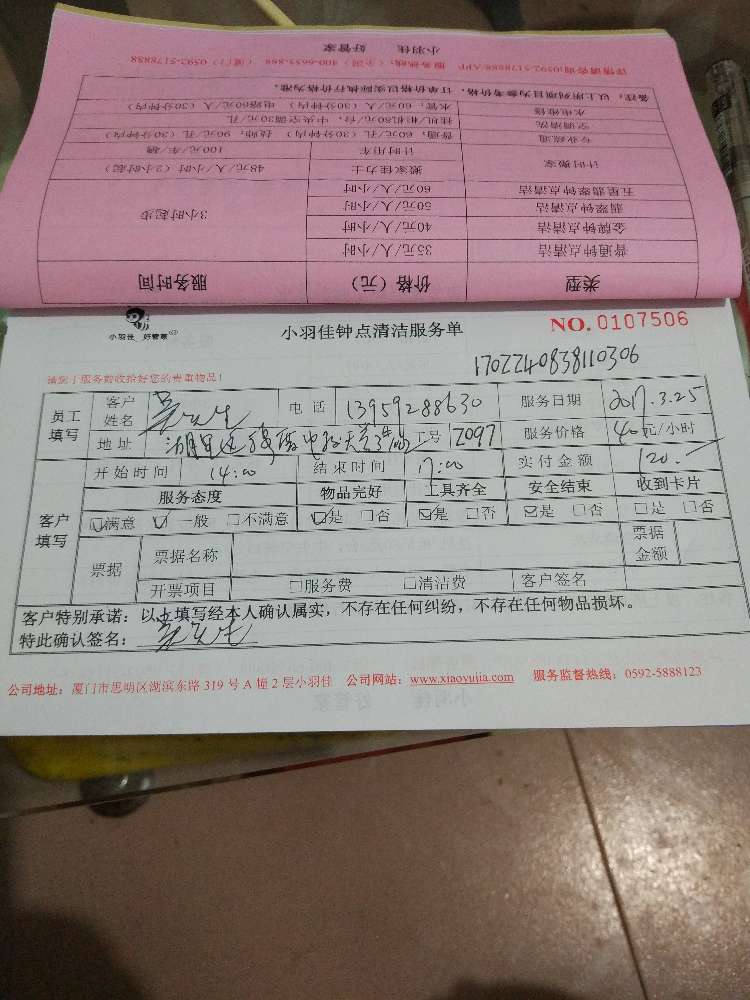 小羽佳 好管家
详情请咨询:0592-5178888/APP 服务热线:(全国)400-6655-888 (厦门)0592-5178888
备注:以上所列项目为参考价格,订单价格以实际执行价格为准。
水电维修 水管,60元/人(30分钟内) 电路60元/人(30分钟内)
空调清洗 挂机/柜机80元/台,中央空调30元/孔
专业疏通 普通,60元/孔(30分钟内) 技师,90元/孔(30分钟内)
计时搬家 计时用车 100元/车/辆
搬家佳力士 48元/人/小时(2小时起)
五星翡翠钟点清洁 60元/人/小时
翡翠钟点清洁 50元/人/小时 3小时起步
金牌钟点清洁 40元/人/小时
普通钟点清洁 35元/人/小时
类型 价格(元) 服务时间
小羽佳 好管家
小羽佳钟点清洁服务单 NO. 0107506
1702240838110306
请您于服务前收拾好您的贵重物品!
员工填写 客户姓名 电话 13959288630 服务日期 2017.3.25
地址 号 2097 服务价格 40元/小时
客户填写 开始时间 14:00 结束时间 17:00 实付金额 120.—
服务态度 物品完好 工具齐全 安全结束 收到卡片
☑满意 一般 □不满意 ☑是 □否 ☑是 □否 ☑是 □否 □是 □否
票据 票据名称 票据金额
开票项目 □服务费 □清洁费 客户签名
客户特别承诺:以上填写经本人确认属实,不存在任何纠纷,不存在任何物品损坏。
特此确认签名:
公司地址:厦门市思明区湖滨东路 319 号 A 幢 2 层小羽佳 公司网站:www.xiaoyujia.com 服务监督热线:0592-5888123